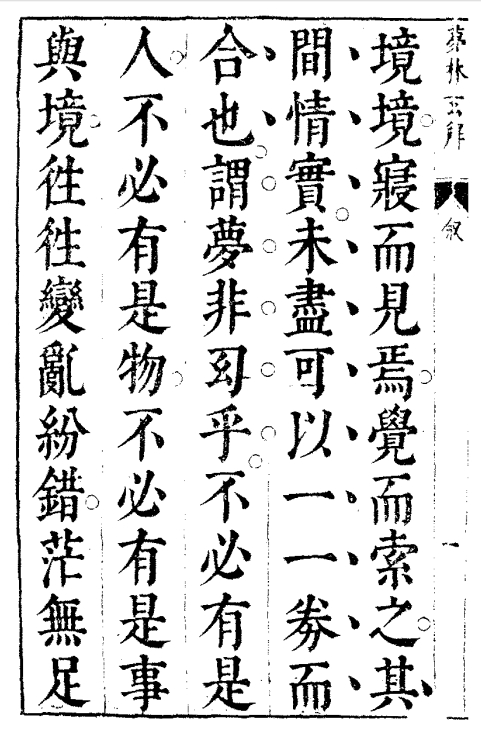 夢林玄解
敘
一
境境寢而見焉覺而索之其
間情實未盡可以一一券而
合也謂夢非幻乎不必有是
人不必有是物不必有是事
與境徃徃變亂紛錯茫無足